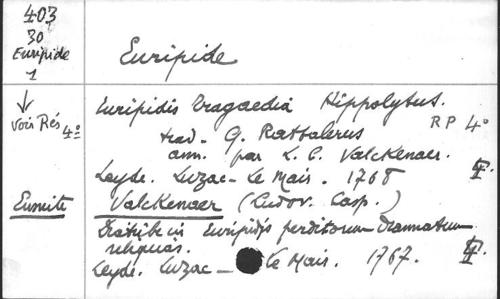 403
30
Euripide
1
Euripide
↓
Voir Rés 4º
Euripidis Tragaedia Hippolytus.
RP 4º
trad. G. Ratalerus
ann. par L. C. Valckenaer.
Leyde. Luzac - Le Mair. 1768
Ensuite
Valckenaer (Ludov. Casp.)
Diatribe in Euripidis perditorum dramatum
reliquias.
Leyde. Luzac - Le Mair. 1767.